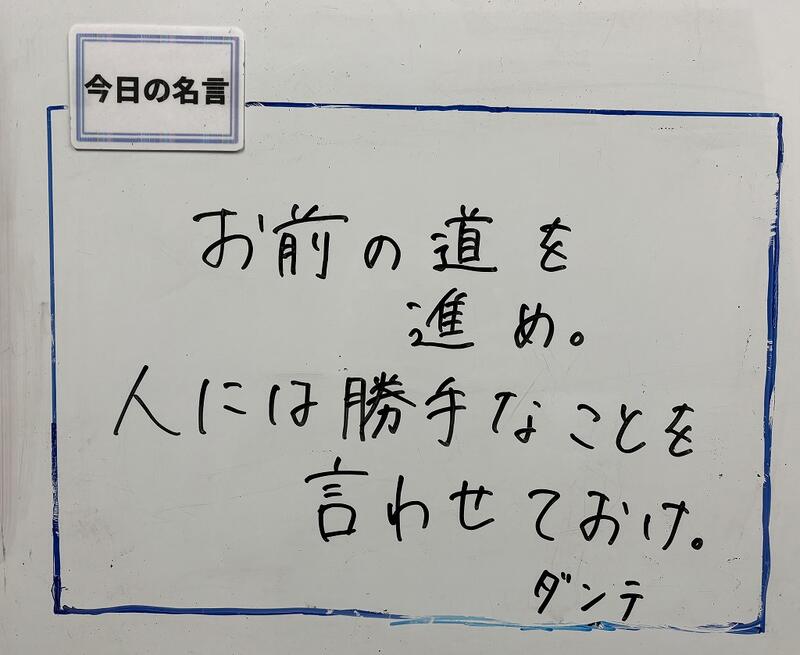 今日の名言
お前の道を
進め。
人には勝手なことを
言わせておけ。
ダンテ